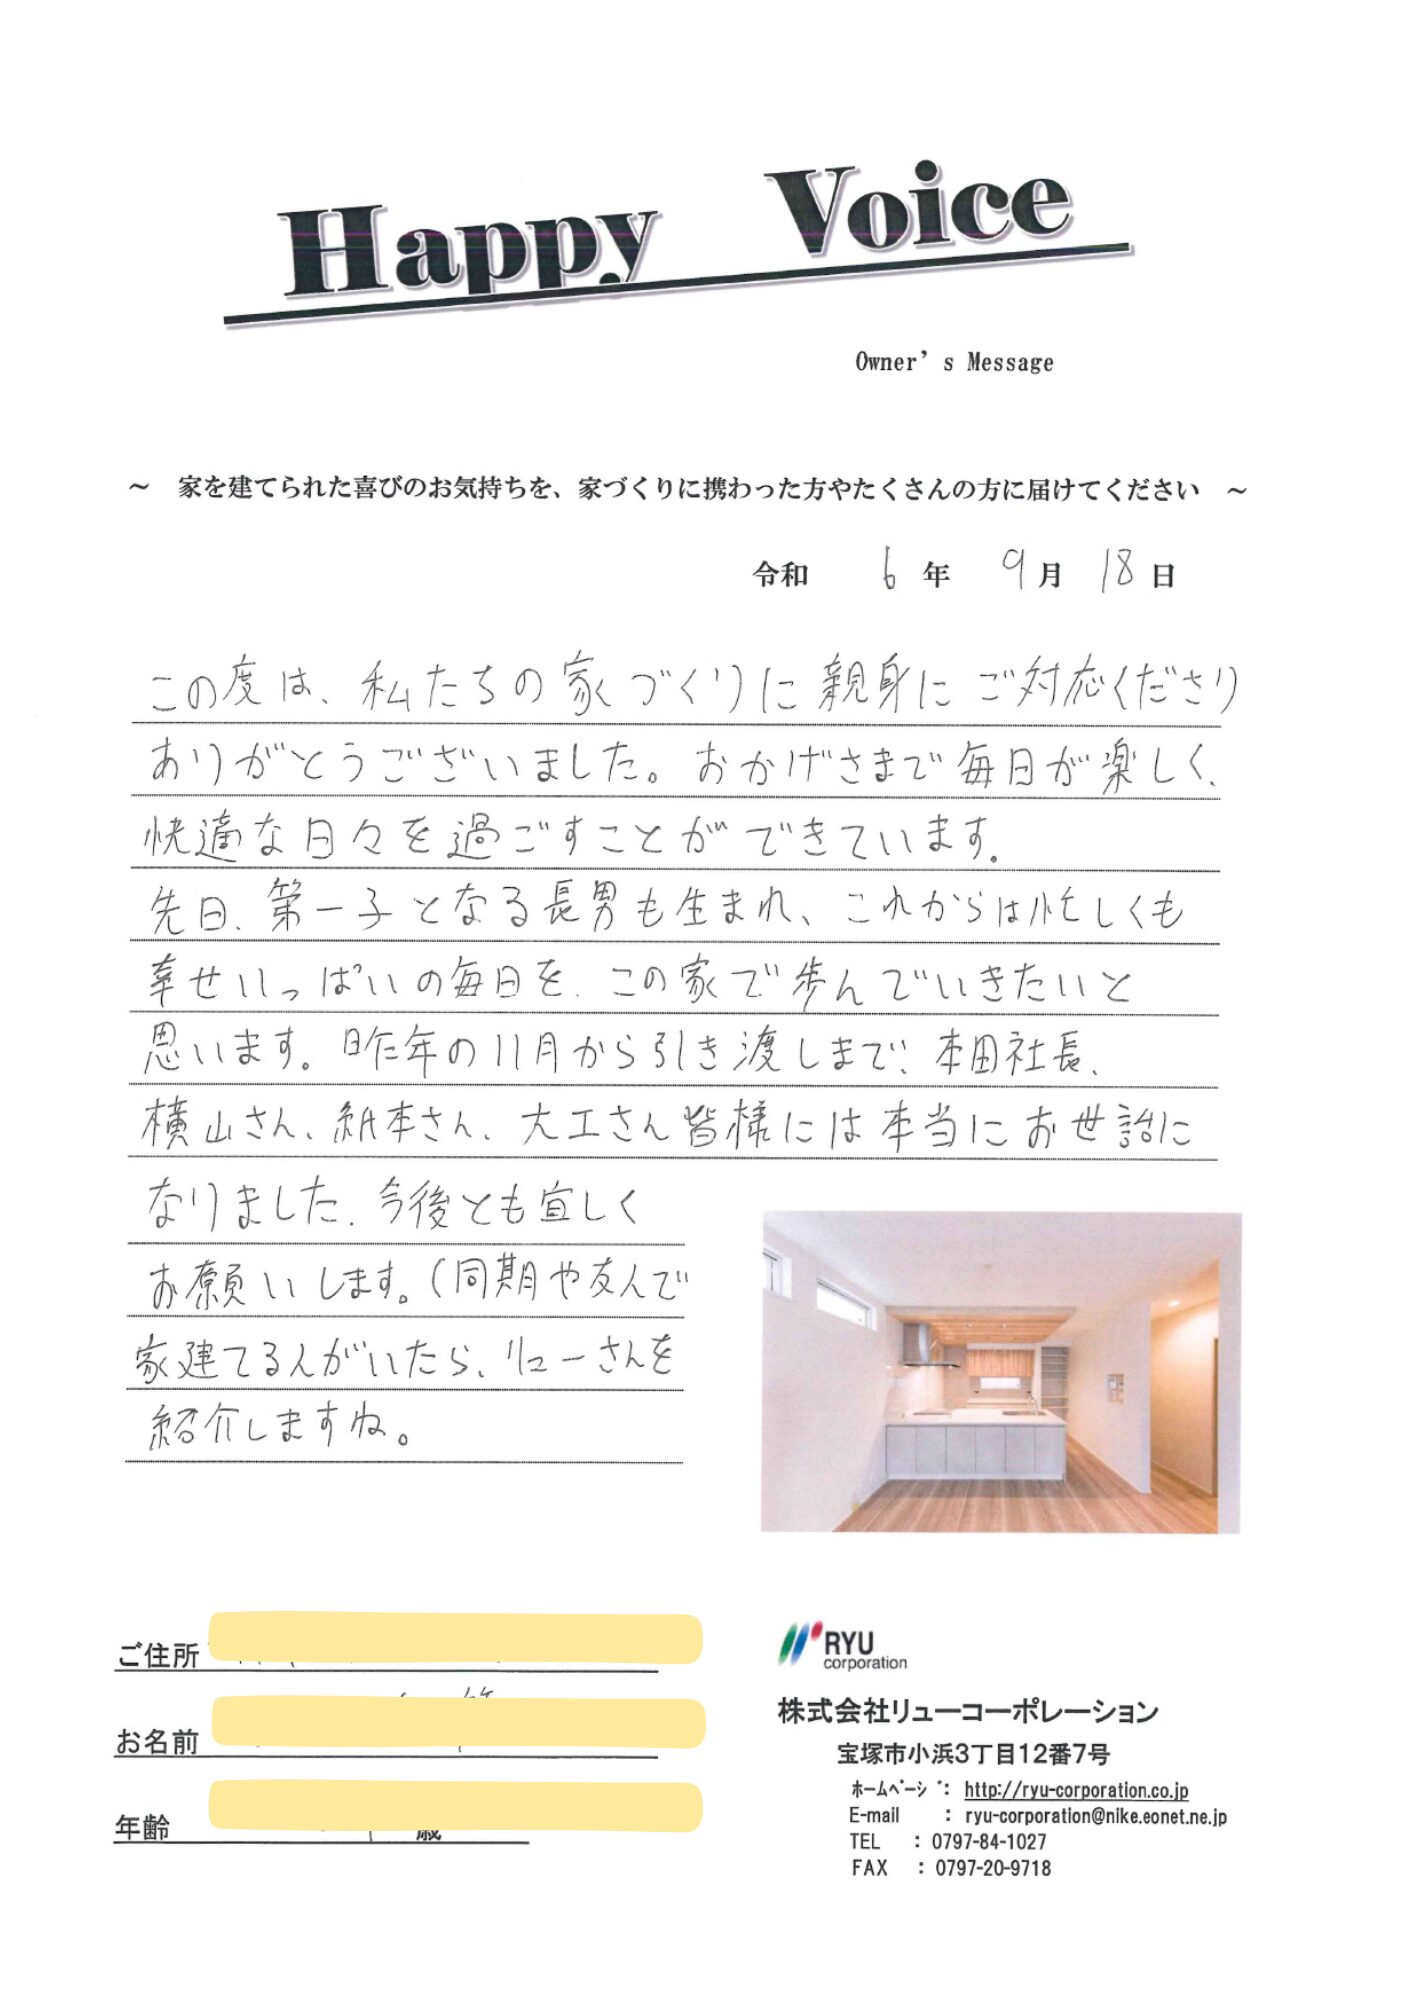 Happy Voice
Owner's Message
～ 家を建てられた喜びのお気持ちを、家づくりに携わった方やたくさんの方に届けてください ～
令和 6 年 9 月 18 日
この度は、私たちの家づくりに親身にご対応くださり
ありがとうございました。おかげさまで毎日が楽しく、
快適な日々を過ごすことができています。
先日、第一子となる長男も生まれ、これからは忙しくも
幸せいっぱいの毎日を、この家で歩んでいきたいと
思います。昨年の11月から引き渡しまで、本田社長、
横山さん、紙本さん、大工さん皆様には本当にお世話に
なりました。今後とも宜しく
お願いします。(同期や友人で
家建てる人がいたら、リューさんを
紹介しますね。
ご住所
お名前
年齢 歳
RYU
corporation
株式会社リューコーポレーション
宝塚市小浜3丁目12番7号
ﾎｰﾑﾍﾟｰｼﾞ： http://ryu-corporation.co.jp
E-mail ： ryu-corporation@nike.eonet.ne.jp
TEL ： 0797-84-1027
FAX ： 0797-20-9718